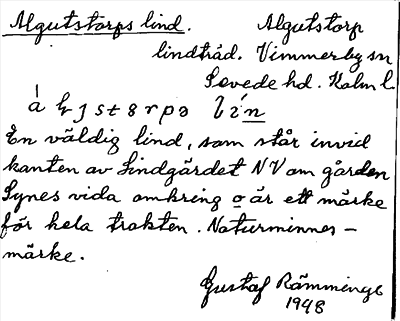 Algutstorps lind. Algutstorp
lindträd. Vimmerby sn
Sevede hd. Kalm l.
En väldig lind, som står invid
kanten av Lindgärdet NV om gården
Synes vida omkring o är ett märke
för hela trakten. Naturminnes-
märke.
Gustaf Rämminge
1948